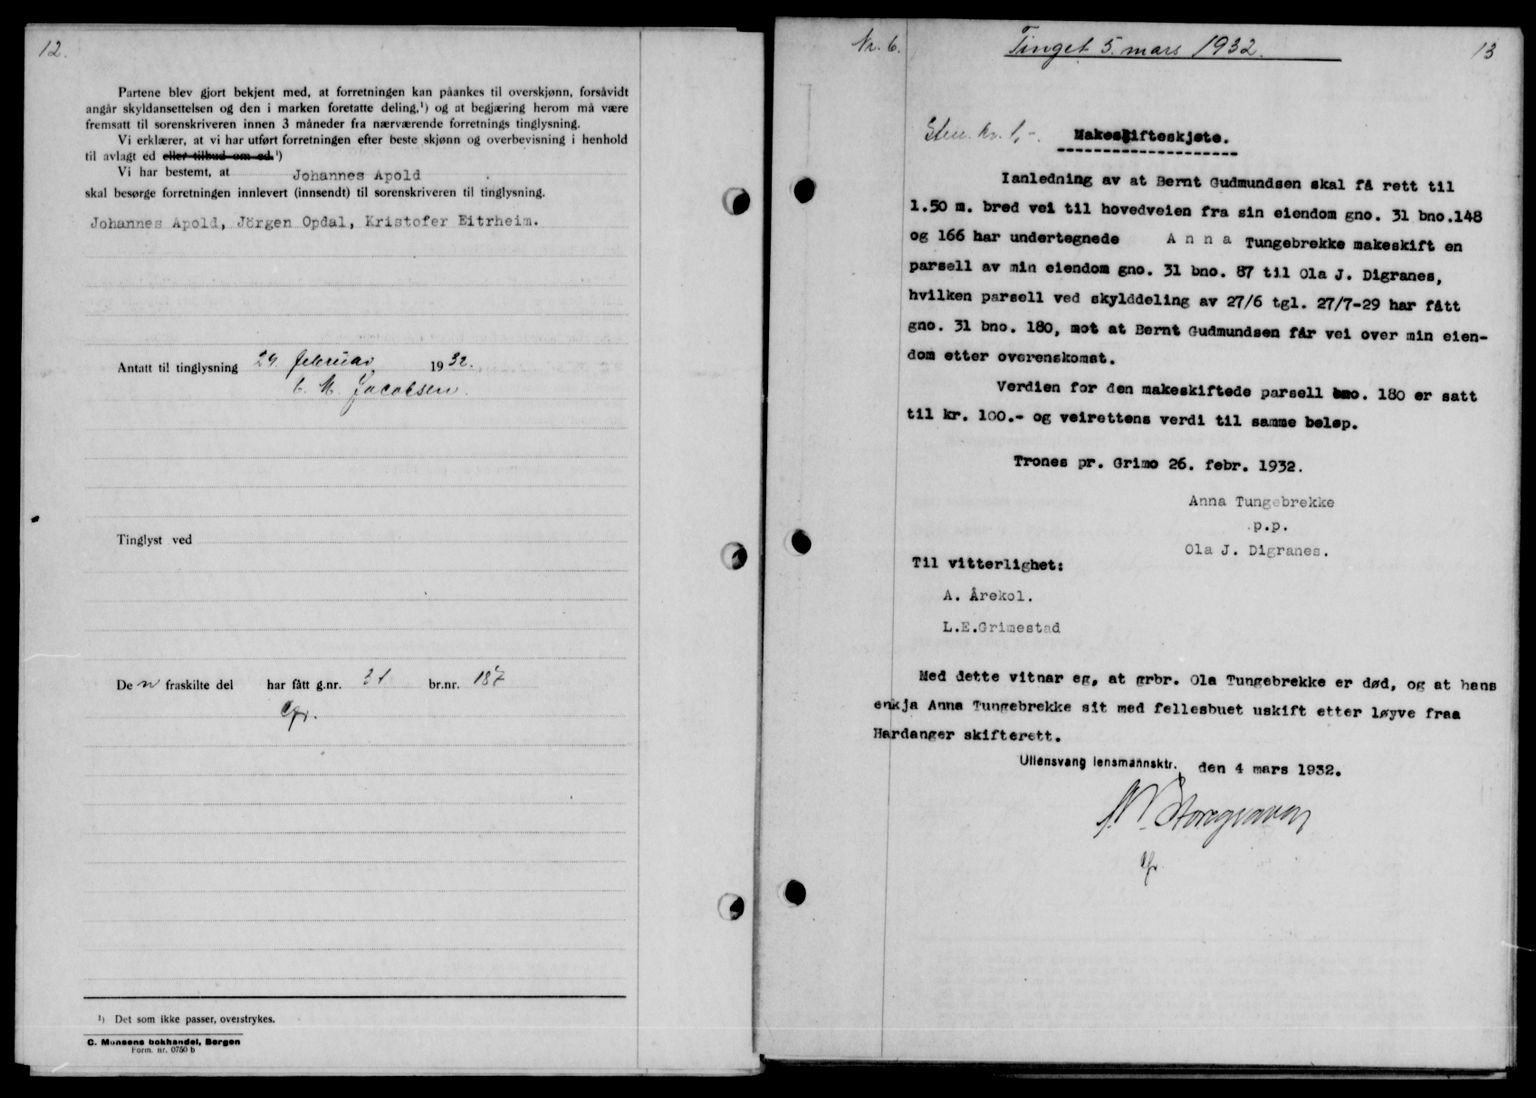 12.
Partene blev gjort bekjent med, at forretningen kan påankes til overskjønn, forsåvidt
angår skyldansettelsen og den i marken foretatte deling,¹) og at begjæring herom må være
fremsatt til sorenskriveren innen 3 måneder fra nærværende forretnings tinglysning.
Vi erklærer, at vi har utført forretningen efter beste skjønn og overbevisning i henhold
til avlagt ed eller tilbud om ed.¹)
Vi har bestemt, at Johannes Apold
skal besørge forretningen innlevert (innsendt) til sorenskriveren til tinglysning.
Johannes Apold, Jörgen Opdal, Kristofer Eitrheim.
Antatt til tinglysning 29 februar 1932.
C. M. Jacobsen.
Tinglyst ved
Den fraskilte del har fått g.nr. 31 br.nr. 187
¹) Det som ikke passer, overstrykes.
C. Munsens bokhandel, Bergen
Form. nr. 0750 b
Nr. 6. Tinget 5. mars 1932. 13
kr. 1,-. Makeskifteskjøte.
Ianledning av at Bernt Gudmundsen skal få rett til
1.50 m. bred vei til hovedveien fra sin eiendom gno. 31 bno.148
og 166 har undertegnede Anna Tungebrekke makeskift en
parsell av min eiendom gno. 31 bno. 87 til Ola J. Digranes,
hvilken parsell ved skylddeling av 27/6 tgl. 27/7-29 har fått
gno. 31 bno. 180, mot at Bernt Gudmundsen får vei over min eien-
dom etter overenskomst.
Verdien for den makeskiftede parsell bno. 180 er satt
til kr. 100.- og veirettens verdi til samme beløp.
Trones pr. Grimo 26. febr. 1932.
Anna Tungebrekke
p.p.
Ola J. Digranes.
Til vitterlighet:
A. Årekol.
L.E.Grimestad
Med dette vitnar eg, at grbr. Ola Tungebrekke er død, og at hans
enkja Anna Tungebrekke sit med fellesbuet uskift etter løyve fraa
Hardanger skifterett.
Ullensvang lensmannsktr. den 4 mars 1932.